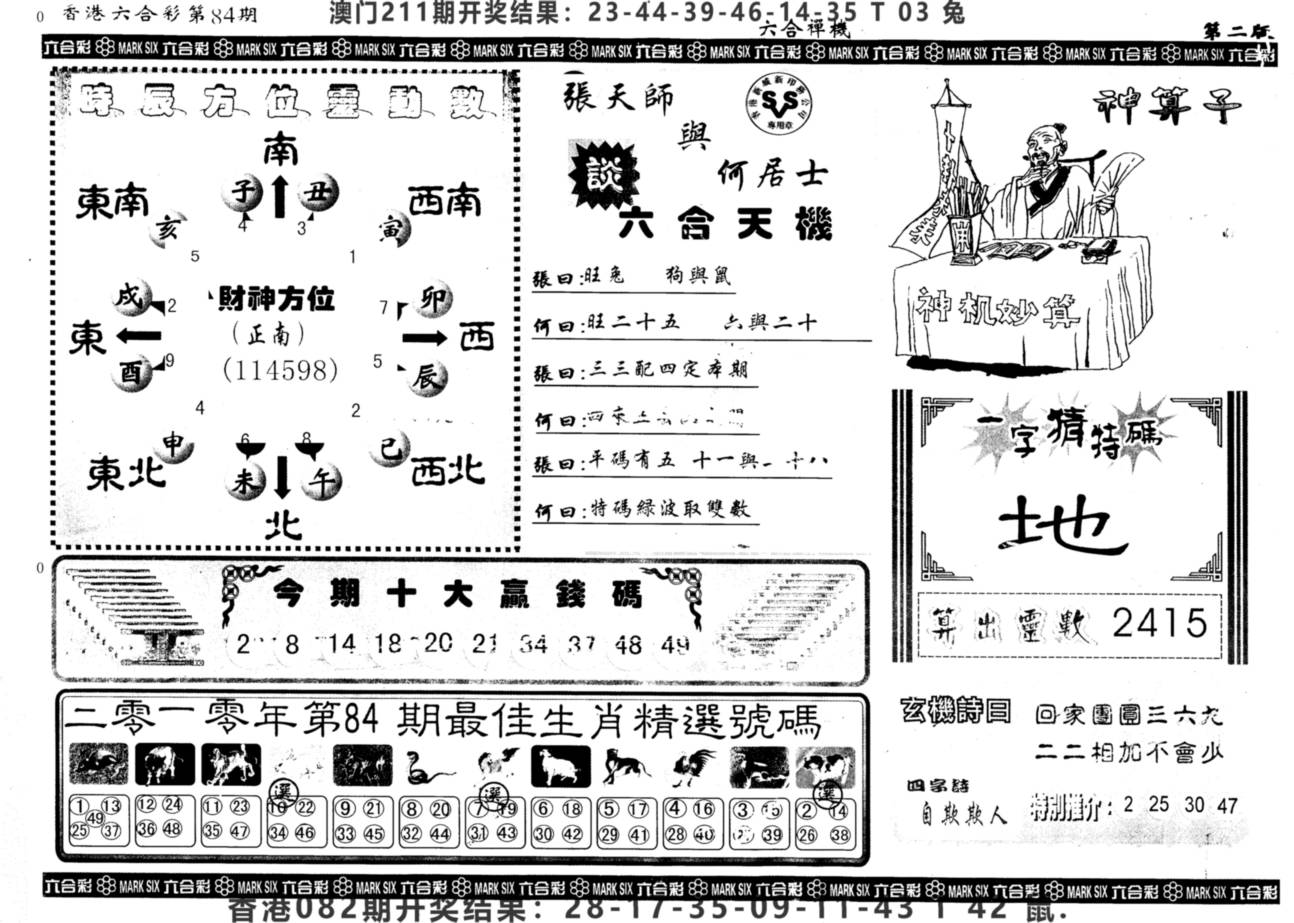 0 香港六合彩第84期
澳门211期开奖结果：23-44-39-46-14-35 T 03 兔
六合禅機
第二版
六合彩 MARK SIX 六合彩 MARK SIX 六合彩 MARK SIX 六合彩 MARK SIX 六合彩 MARK SIX 六合彩 MARK SIX 六合彩 MARK SIX 六合彩 MARK SIX 六合彩 MARK SIX 六合彩 MARK SIX 六合彩
時辰方位靈動數
南
東南 子 丑 西南
亥 4 3 寅
5 1
戌 2 財神方位 7 卯
東 (正南) 西
酉 9 (114598) 5 辰
4 2
申 6 8 巳
東北 未 午 西北
北
張天師
與
何居士
SVS
專用章
談
六合天機
張曰:旺兔 狗與鼠
何曰:旺二十五 六與二十
張曰:三三配四定本期
何曰:四來
張曰:平碼有五 十一與 十八
何曰:特碼綠波取雙數
神算子
神机妙算
一字猜特碼
地
算出靈數 2415
0
今期十大贏錢碼
2 8 14 18 20 21 34 37 48 49
二零一零年第84期最佳生肖精選號碼
選 選 選
1 13 12 24 11 23 10 22 9 21 8 20 7 19 6 18 5 17 4 16 3 15 2 14
49
25 37 36 48 35 47 34 46 33 45 32 44 31 43 30 42 29 41 28 40 39 26 38
玄機詩曰 回家團圓三六九
二二相加不會少
四字詩
自欺欺人
特别推介：2 25 30 47
六合彩 MARK SIX 六合彩 MARK SIX 六合彩 MARK SIX 六合彩 MARK SIX 六合彩 MARK SIX 六合彩 MARK SIX 六合彩 MARK SIX 六合彩 MARK SIX 六合彩 MARK SIX 六合彩 MARK SIX 六合彩
香港082期开奖结果：28-17-35-09-11-43 T 42 鼠.